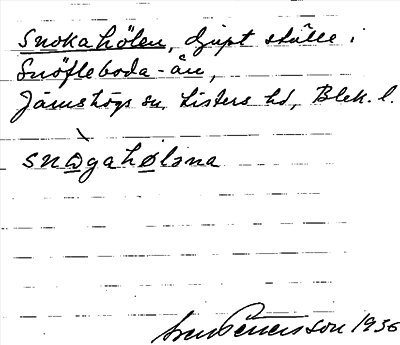 Snokahölen, djupt ställe i
Snöfleboda-ån,
Jämshögs sn. Listers hd, Blek. l.
snɷ̀gahøləna
Sven Petersson 1936